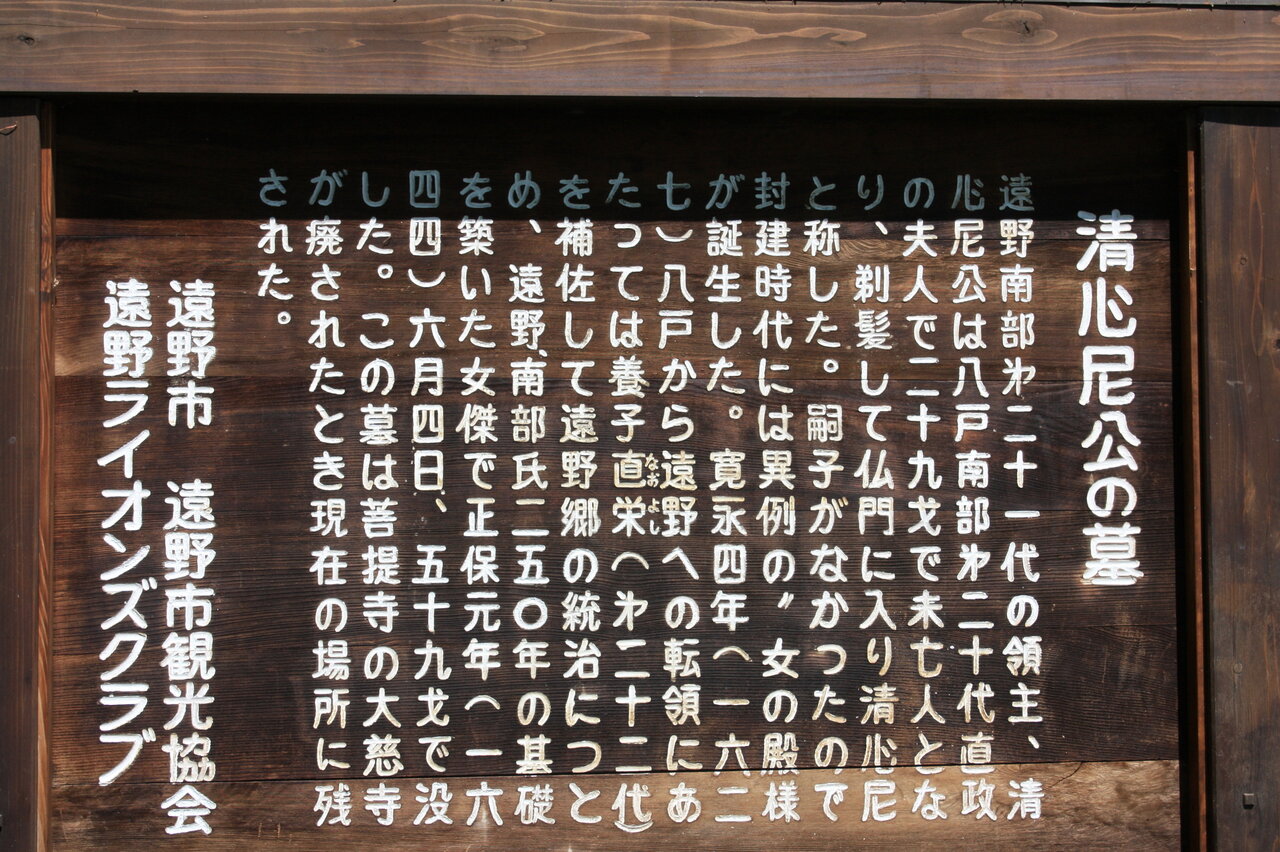 清心尼公の墓
遠野南部㐧二十一代の領主、清
心尼公は八戸南部㐧二十代直政
の夫人で二十九戈で未亡人とな
り、剃髪して仏門に入り清心尼
と称した。嗣子がなかったので
封建時代には異例の〝女の殿様
が誕生した。寛永四年（一六二
七）八戸から遠野への転領にあ
たっては養子直栄（㐧二十二代）
なおよし
を補佐して遠野郷の統治につと
め、遠野、南部氏二五〇年の基礎
を築いた女傑で正保元年（一六
四四）六月四日、五十九戈で没
した。この墓は菩提寺の大慈寺
が廃されたとき現在の場所に残
された。
遠野市 遠野市観光協会
遠野ライオンズクラブ